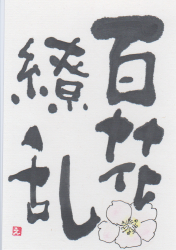 百花
繚乱
え